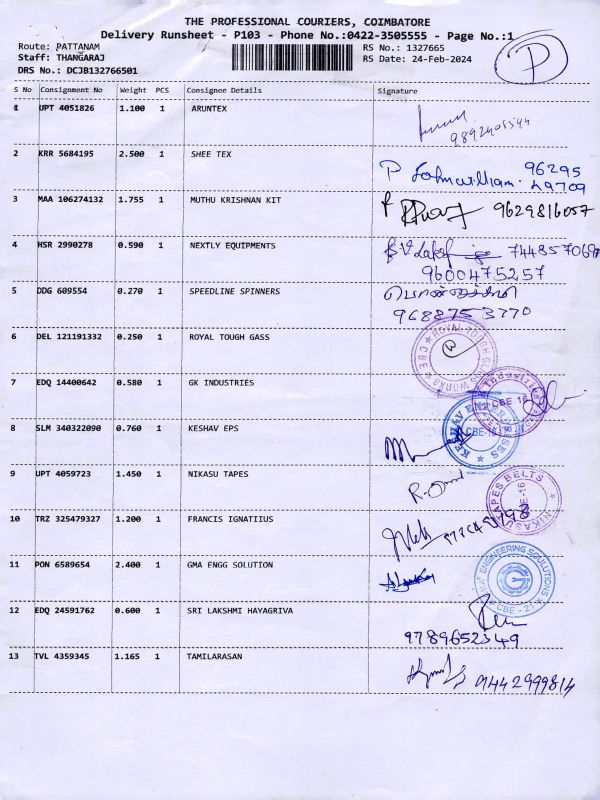 THE PROFESSIONAL COURIERS, COIMBATORE
Delivery Runsheet - P103 - Phone No.:0422-3505555 - Page No.:1
P
Route: PATTANAM
RS No.: 1327665
Staff: THANGARAJ
RS Date: 24-Feb-2024
DRS No.: DCJB132766501
S No Consignment No Weight PCS Consignee Details Signature
1 UPT 4051826 1.100 1 ARUNTEX
2 KRR 5684195 2.500 1 SHEE TEX
P Johnwilliam. 96295
49709
3 MAA 106274132 1.755 1 MUTHU KRISHNAN KIT
9629816057
4 HSR 2990278 0.590 1 NEXTLY EQUIPMENTS
9600475257
5 DDG 609554 0.270 1 SPEEDLINE SPINNERS
9688753770
6 DEL 121191332 0.250 1 ROYAL TOUGH GASS
ROYAL TOUGH GLASS WORKS CBE
7 EDQ 14400642 0.580 1 GK INDUSTRIES
CBE 16
8 SLM 340322090 0.760 1 KESHAV EPS
KESHAV ENTERPRISES CBE-16
9 UPT 4059723 1.450 1 NIKASU TAPES
NIKASU TAPES BELTS
10 TRZ 325479327 1.200 1 FRANCIS IGNATIIUS
11 PON 6589654 2.400 1 GMA ENGG SOLUTION
ENGINEERING SOULUTIONS CBE - 21
12 EDQ 24591762 0.600 1 SRI LAKSHMI HAYAGRIVA
9789652349
13 TVL 4359345 1.165 1 TAMILARASAN
9442999814